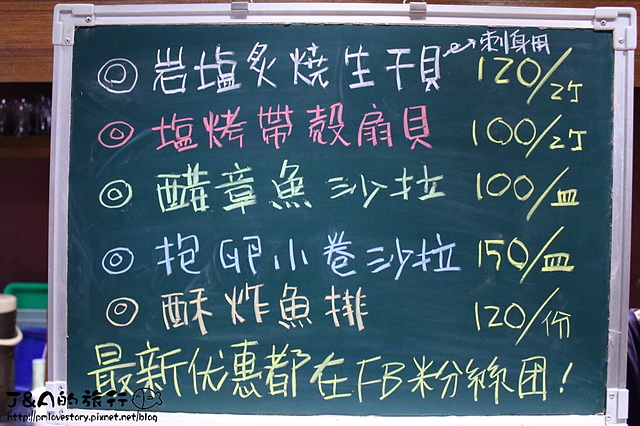 刺身用
◎ 岩塩炙燒生干貝 120/2丁
◎ 塩烤帶殼扇貝 100/2丁
◎ 醋章魚沙拉 100/皿
◎ 抱卵小卷沙拉 150/皿
◎ 酥炸魚排 120/份
最新优惠都在FB粉絲团!
J&A的旅行
http://pmlovestory.pixnet.net/blog